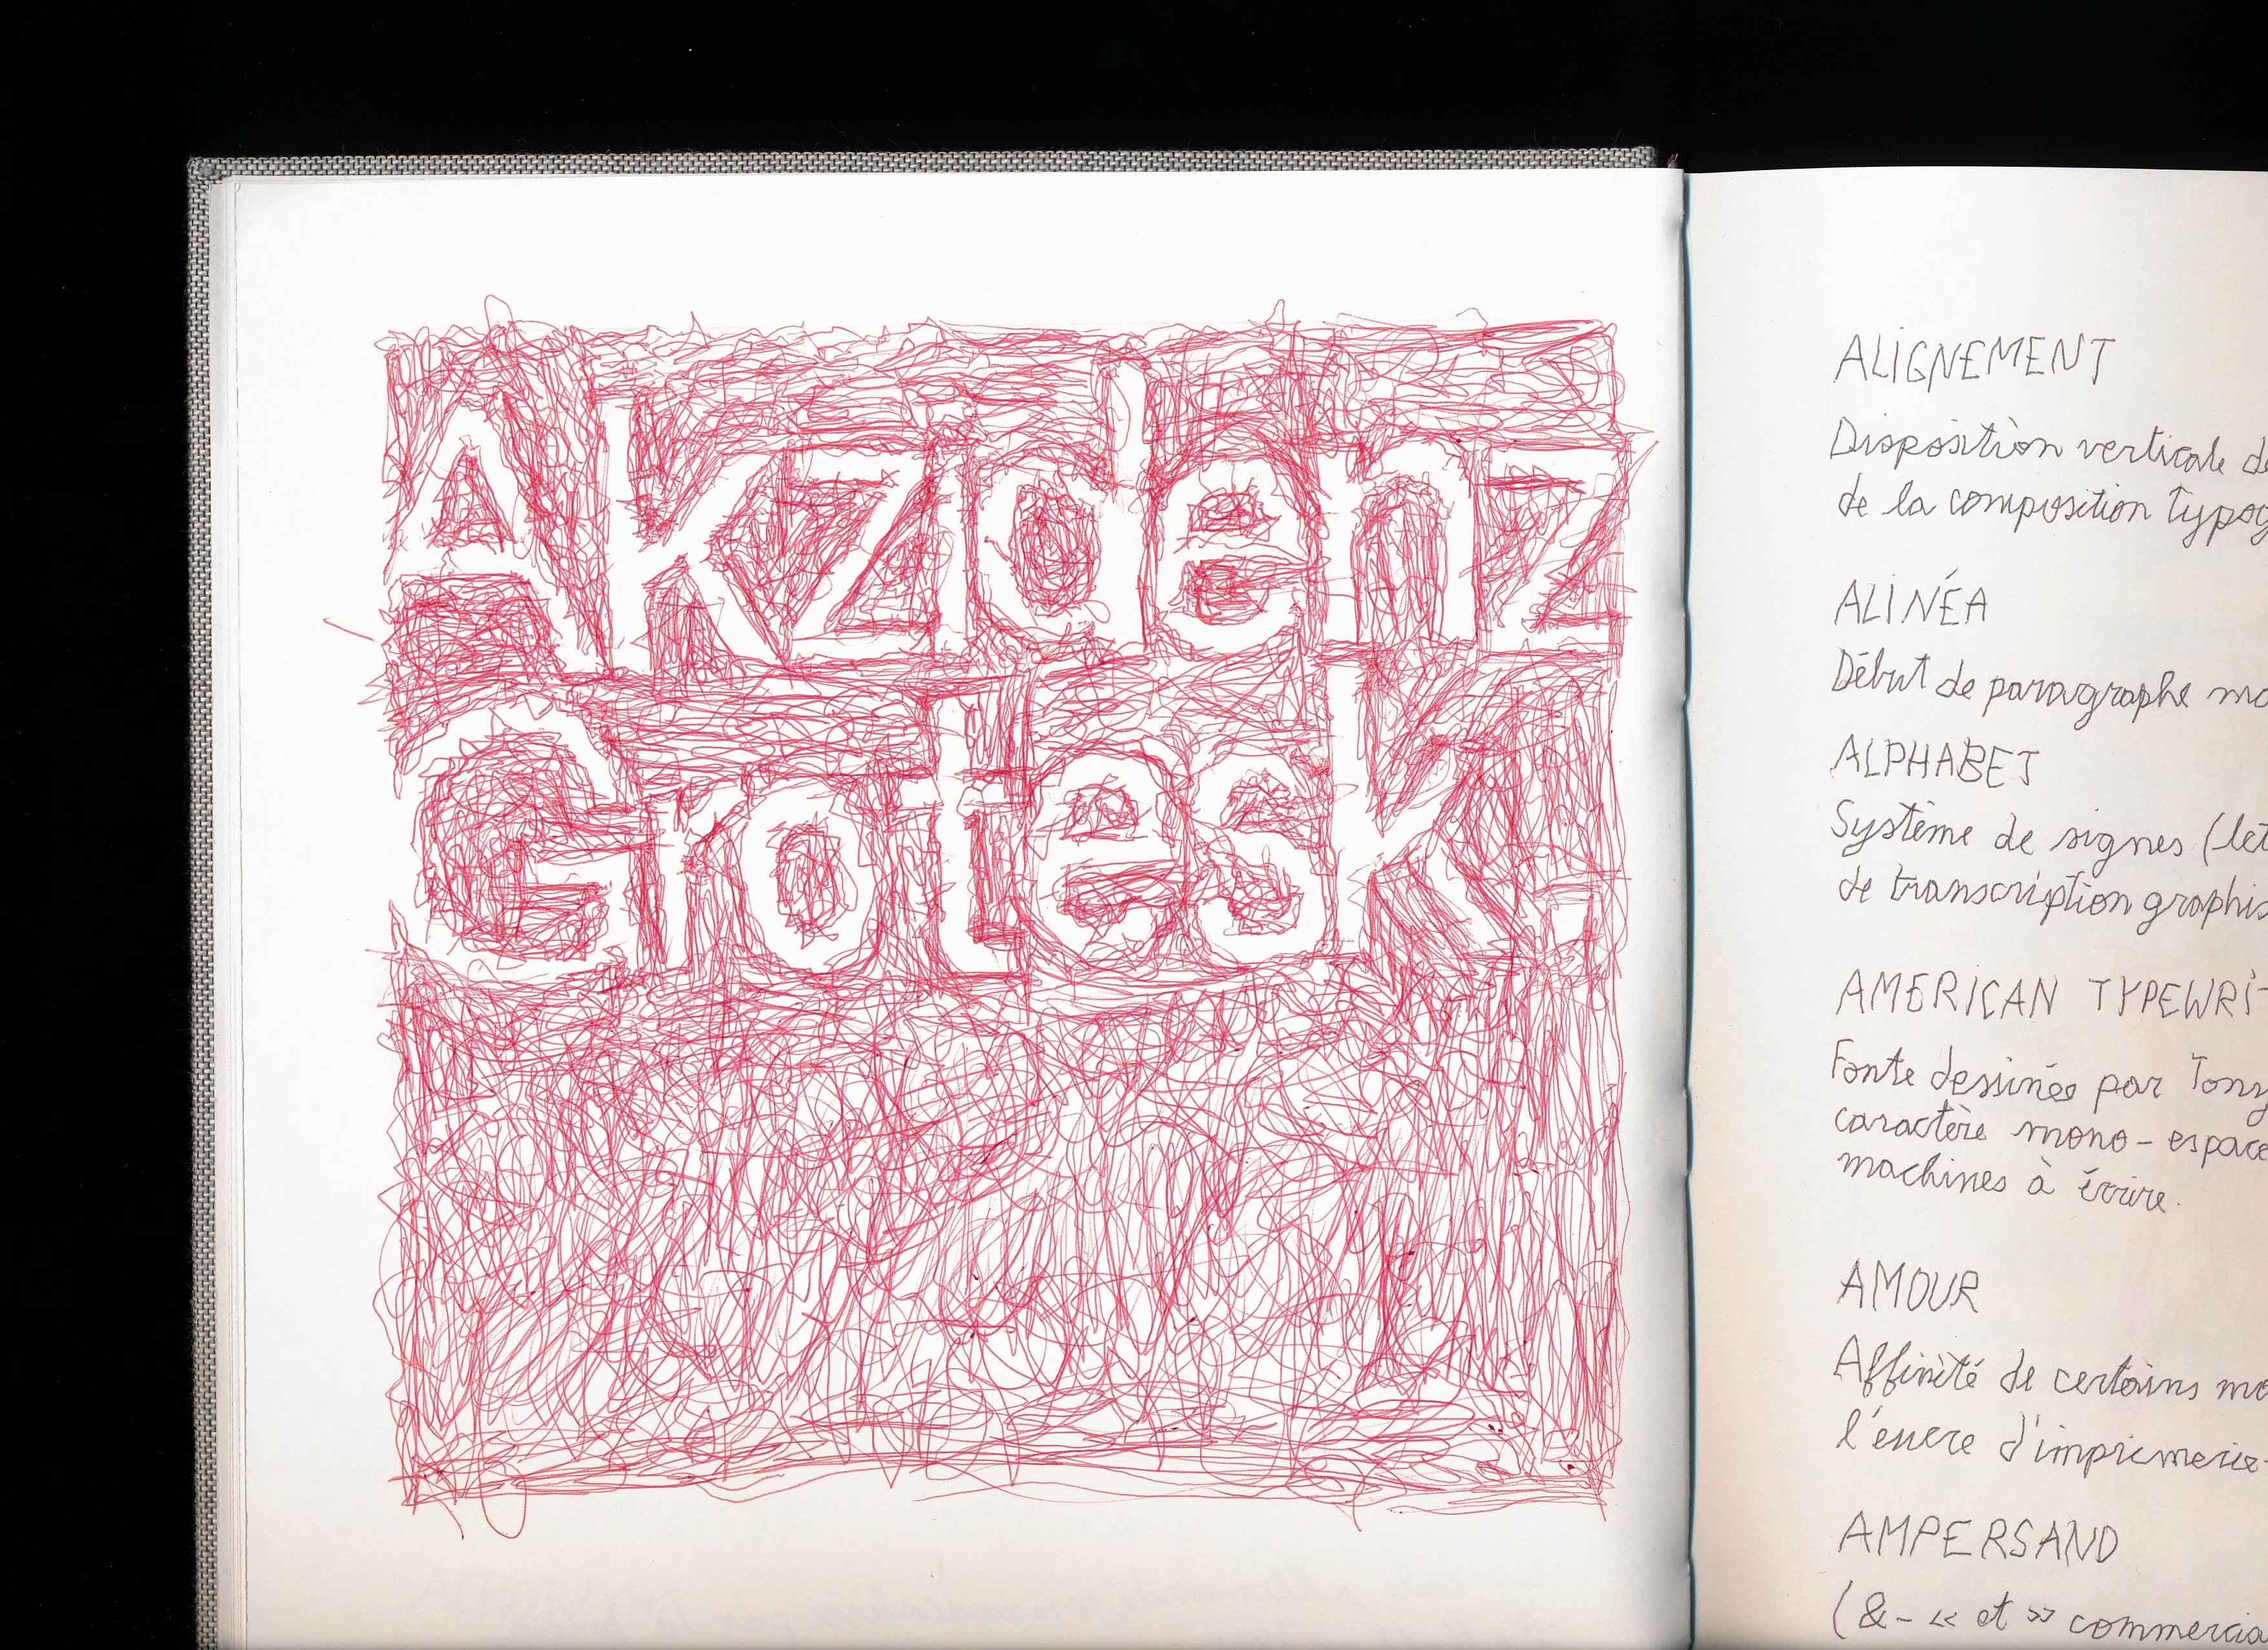 AKzidenz
Grotesk.
ALIGNEMENT
Disposition verticale de
de la composition typog
ALINÉA
Début de paragraphe
ALPHABET
Système de signes (let
de transcription graphi
AMERICAN TYPEWRI
Fonte dessinée par Tony
caractère mono-espace
machines à écrire.
AMOUR
Affinité de certains
l'encre d'imprimerie
AMPERSAND
(&- « et » commercia